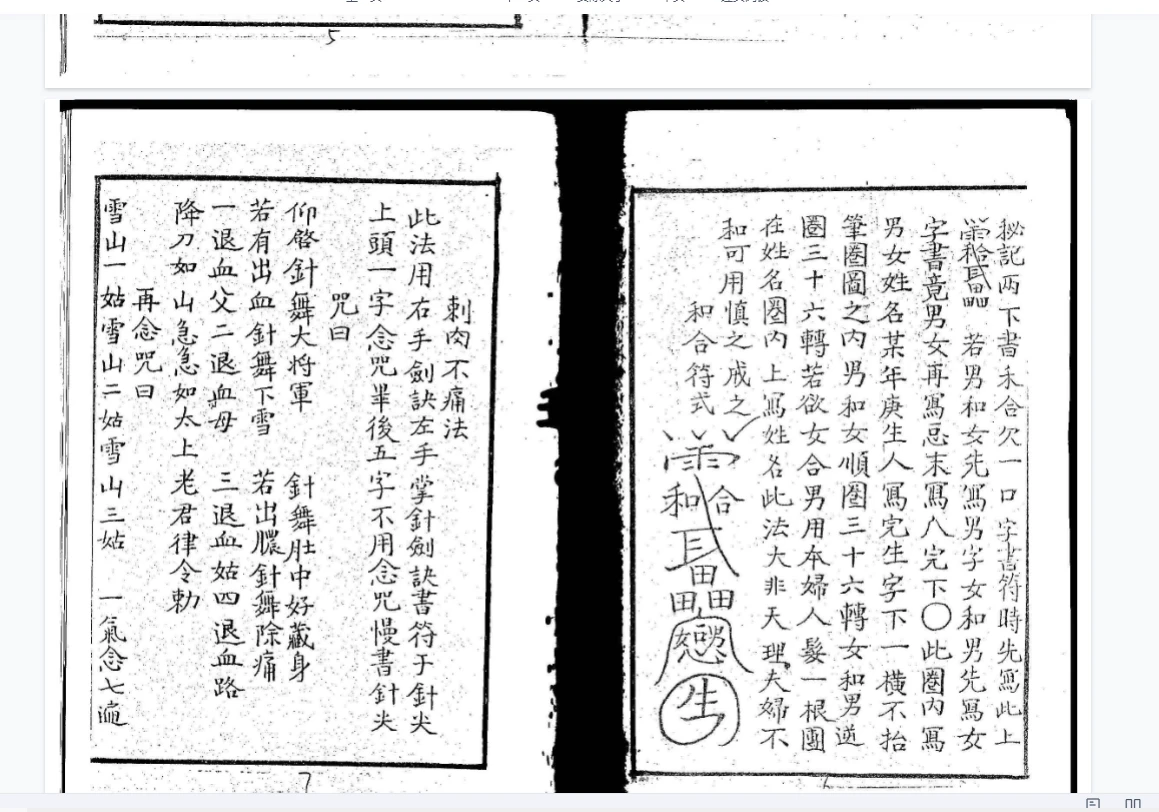 5
秘記两下書禾合欠一口字書符時先寫此上
若男和女先寫男字女和男先寫女
字書竟男女再寫忌末寫八完下〇此圈内寫
男女姓名某年庚生人寫完生字下一橫不抬
筆圈圖之内男和女順圈三十六轉女和男逆
圈三十六轉若欲女合男用本婦人髮一根團
在姓名圈内上寫姓名此法大非天理夫婦不
和可用慎之戒之
和合符式
合
和
田
田田
戀
生
6
刺肉不痛法
此法用右手劍訣左手掌針劍訣書符于針尖
上頭一字念咒畢後五字不用念咒慢書針尖
咒曰
仰啓針舞大将軍 針舞肚中好藏身
若有出血針舞下雪 若出膿針舞除痛
一退血父二退血母 三退血姑四退血路
降刀如山急急如太上老君律令勅
再念咒曰
雪山一姑雪山二姑雪山三姑 一氣念七遍
7